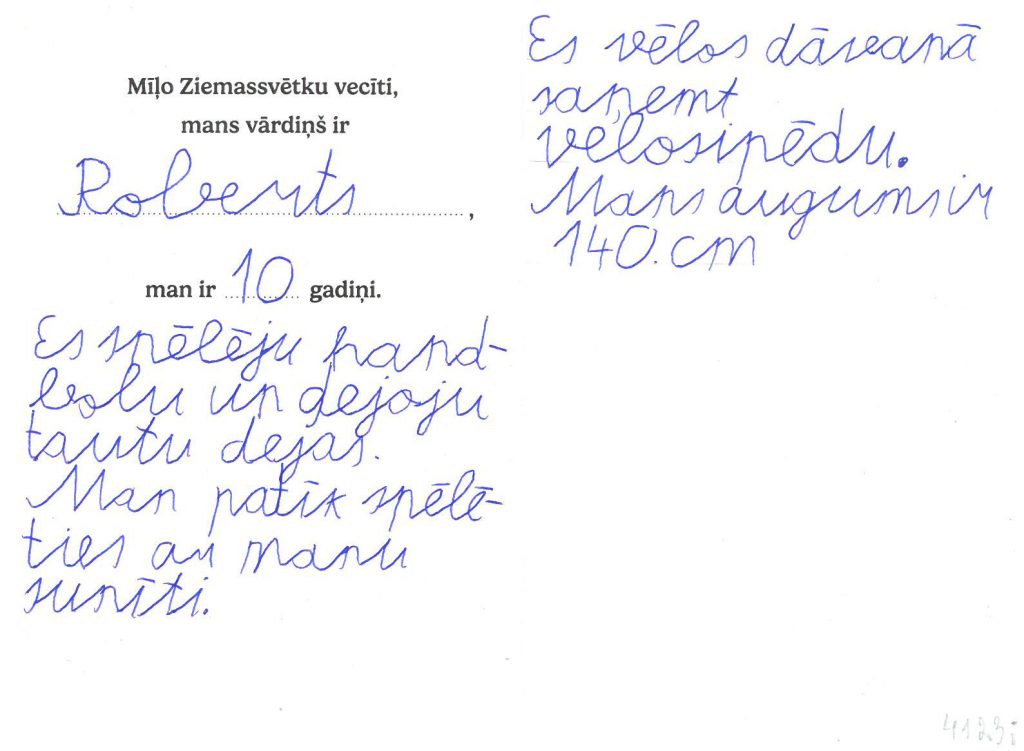 Mīļo Ziemassvētku vecīti,
mans vārdiņš ir
Roberts,
man ir 10 gadiņi.
Es spēlēju hand-
bolu un dejoju
tautu dejas.
Man patīk spēlē-
ties ar manu
sunīti.
Es vēlos dāvanā
saņemt
velosipēdu.
Mans augums ir
140. cm
4123i